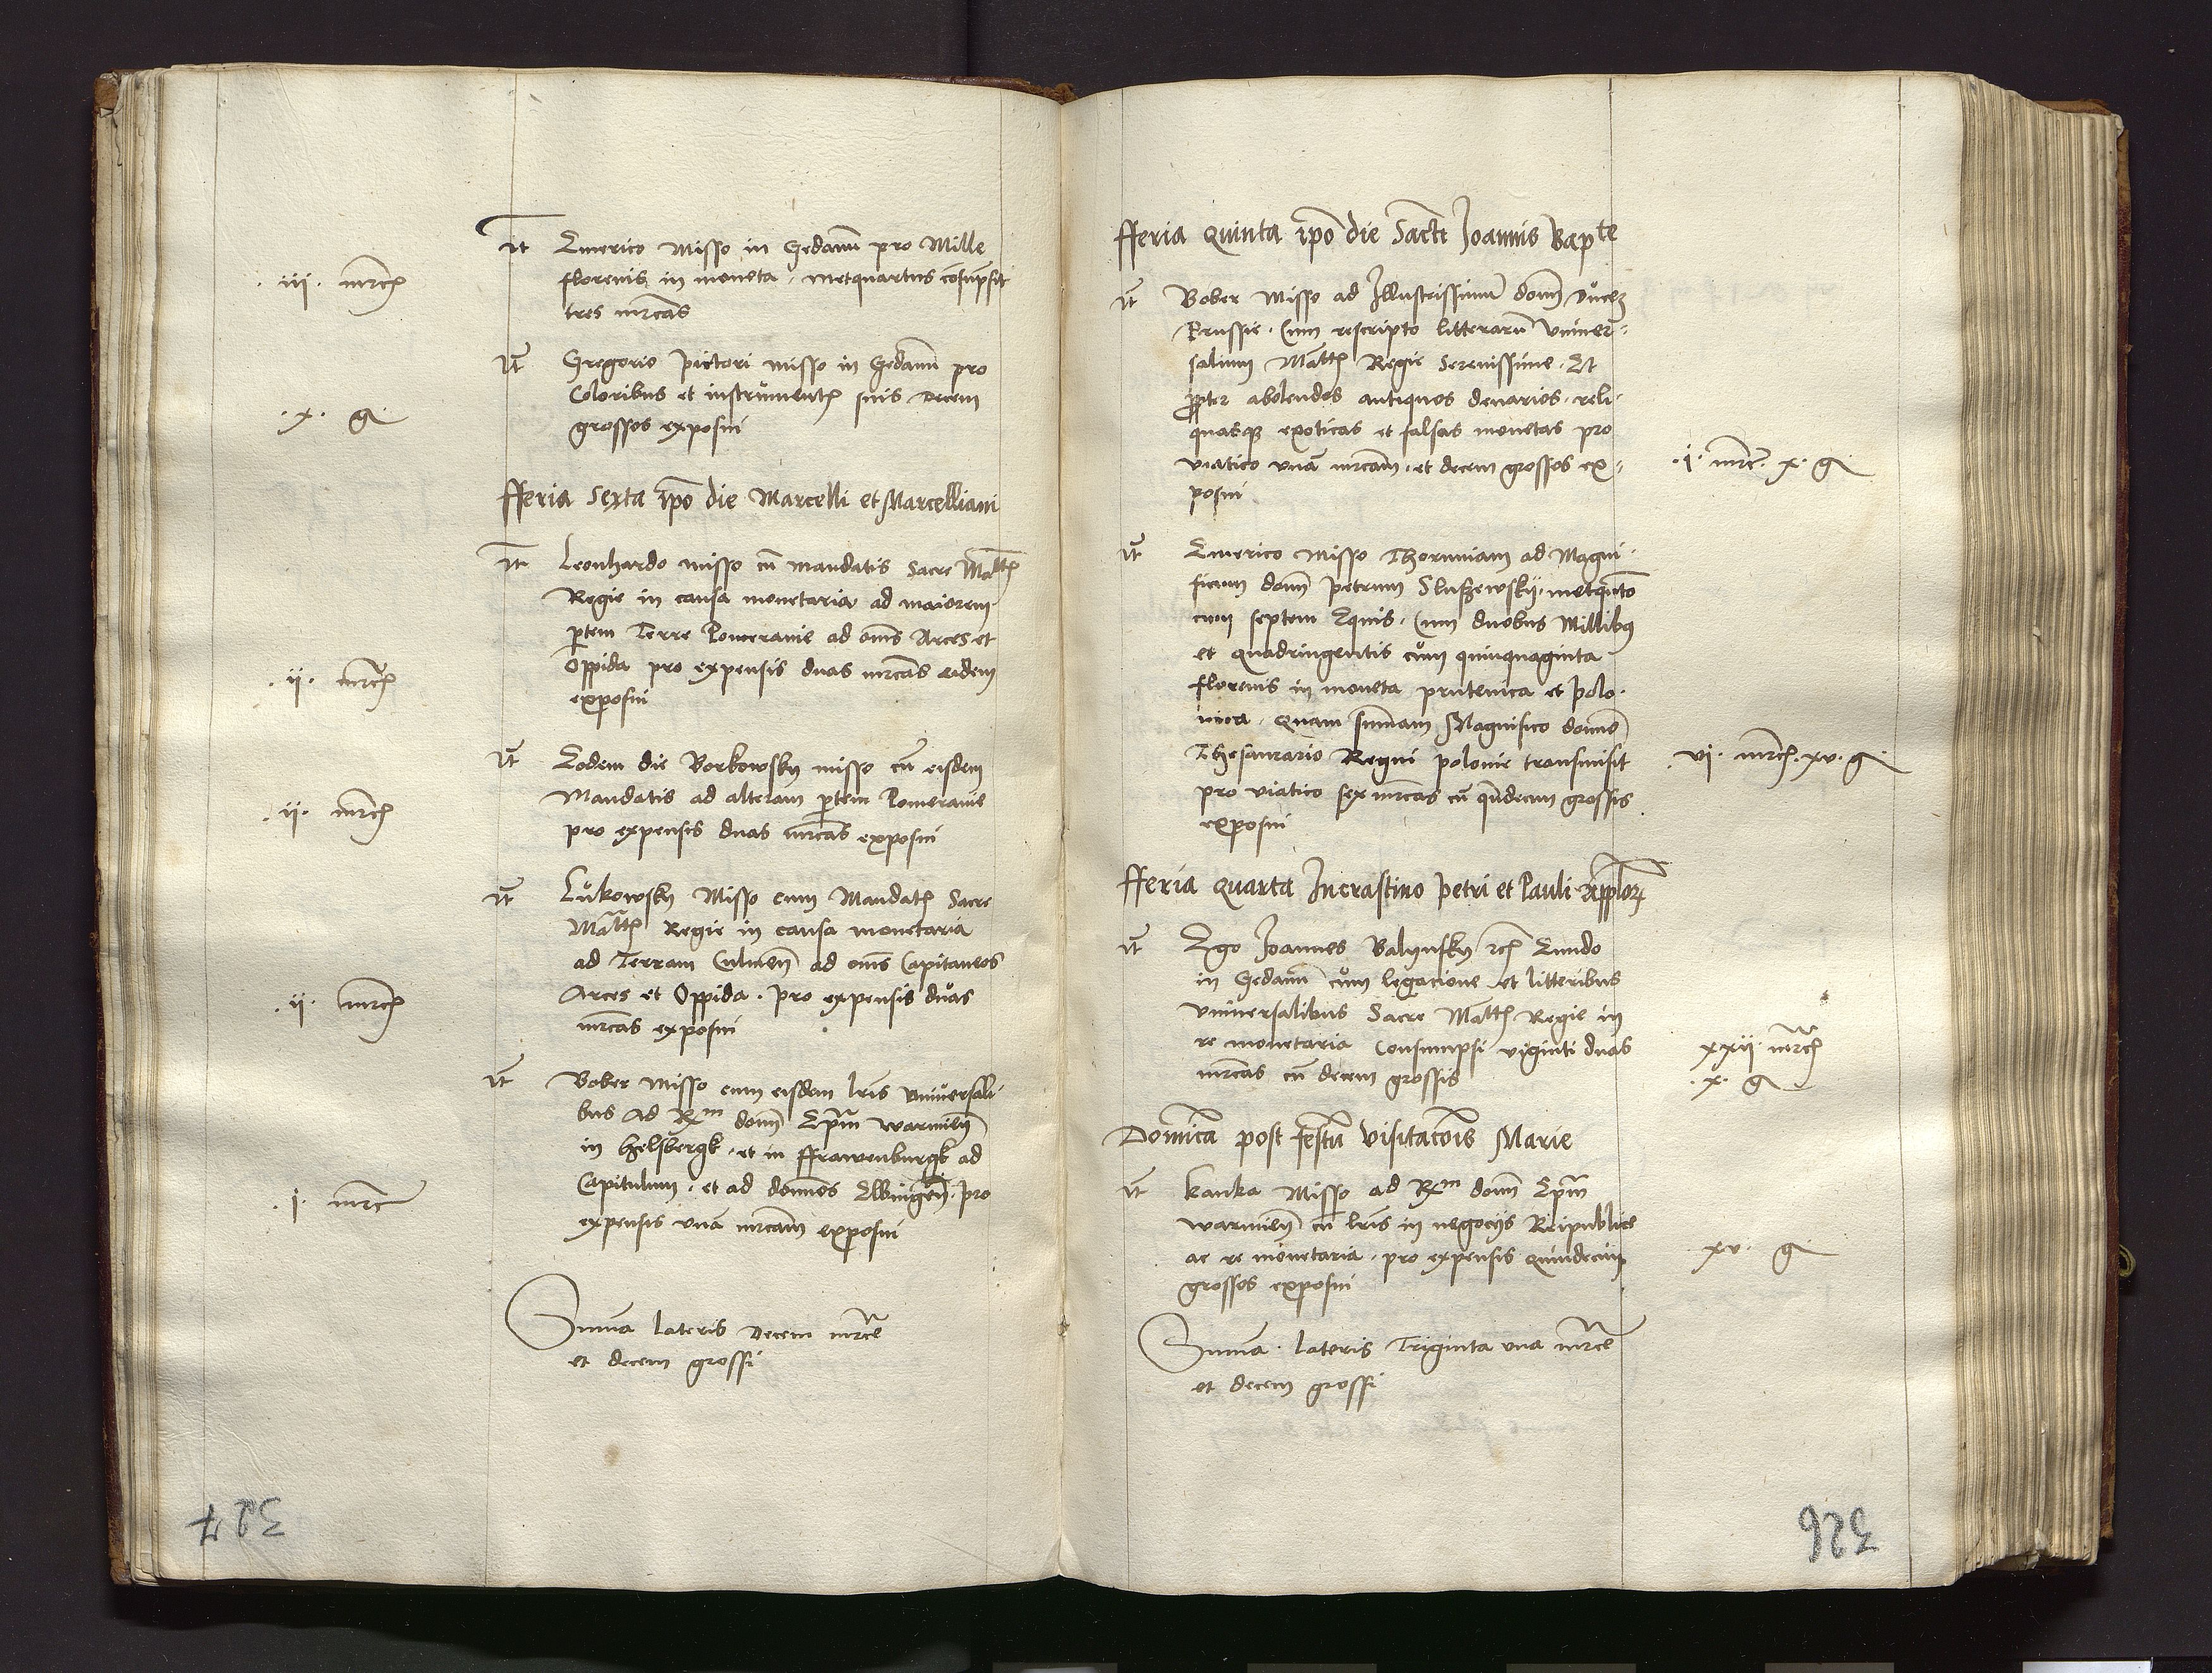 It Emerico Misso in Gedanū pro Mille
.iii. mrcꝭ
florenis in moneta. metquartus cōsūpsit
tres mrcas
It Gregorio pictori misso in Gedanū pro
Coloribus et instrumentꝭ suis Decem
.x. g.
grossos exposui
fferia sexta ipō die Marcelli et Marcelliani
It Leonhardo misso cū mandatis Sacre Mattꝭ
Regie in causa monetaria ad maiorem
ptem Terre Pomeranie ad oms Arces et
.ii. mrcꝭ
Oppida pro expensis duas mrcas eidem
exposui
It Eodem die Borkowsky misso cū eisdem
Mandatis ad alteram ptem Pomeranie
.ii. mrcꝭ
pro expensis duas mrcas exposui
It Lukowsky Misso cum Mandatꝭ Sacre
Mattꝭ Regie in causa monetaria
ad Terram Culmeñ ad oms Capitaneos
.ii. mrcꝭ
Arces et Oppida. pro expensis duas
mrcas exposui
It Bober Misso cum eisdem lris vniuersali
bus Ad Rm dom̄ Epm̄ warmieñ
in Helsbergk. et in ffrawenburgk ad
.i. mrc
Capitulum. et ad domnos Elbingeñ. pro
expensis vnā mrcam exposui
Summa lateris Decem mrce
et decem grossi
327
fferia quinta ipō die Sācti Joannis Bapte
It Bober Misso ad Illustrissimū dom̄ Ducez
Prussie. Cum rescripto litterarū vniuer-
salium Mattꝭ Regie Serenissime. Et
ppter abolendos antiquos denarios. reli-
quasqꝫ exoticas et falsas monetas pro
viatico vnā mrcam. et decem grossos ex-
.i. mrc. x. g.
posui
It Emerico Misso Thorunniam ad Magni-
ficum dom̄ Petrum Slußzewskij. metquīto
cum septem Equis. Cum duobus Millibꝰ
et quadringentis cum quinquaginta
florenis in moneta prutenica et polo-
nica. quam summam Magnifico domno
Thesaurario Regni polonie transmisit
.vi. mrcꝭ. xv. g.
pro viatico sex mrcas cū quīdecim grossis
exposui
fferia quarta Incrastino Petri et Pauli Applorꝝ
It Ego Joannes Balynsky rcꝭ Eundo
in Gedanū cum legacione et litteribus
vniuersalibus Sacre Mattꝭ Regie in
re monetaria Consumpsi viginti duas
xxii mrcꝭ
mrcas cū decem grossis
.x. g
Domīca post festū visitacōis Marie
It Kanka Misso ad Rm dom̄ Epm̄
warmieñ cū lris in negocijs Reipublice
ac re monetaria. pro expensis quindecim
xv. g.
grossos exposui
Summa lateris Triginta vna mrce
et decem grossi
326